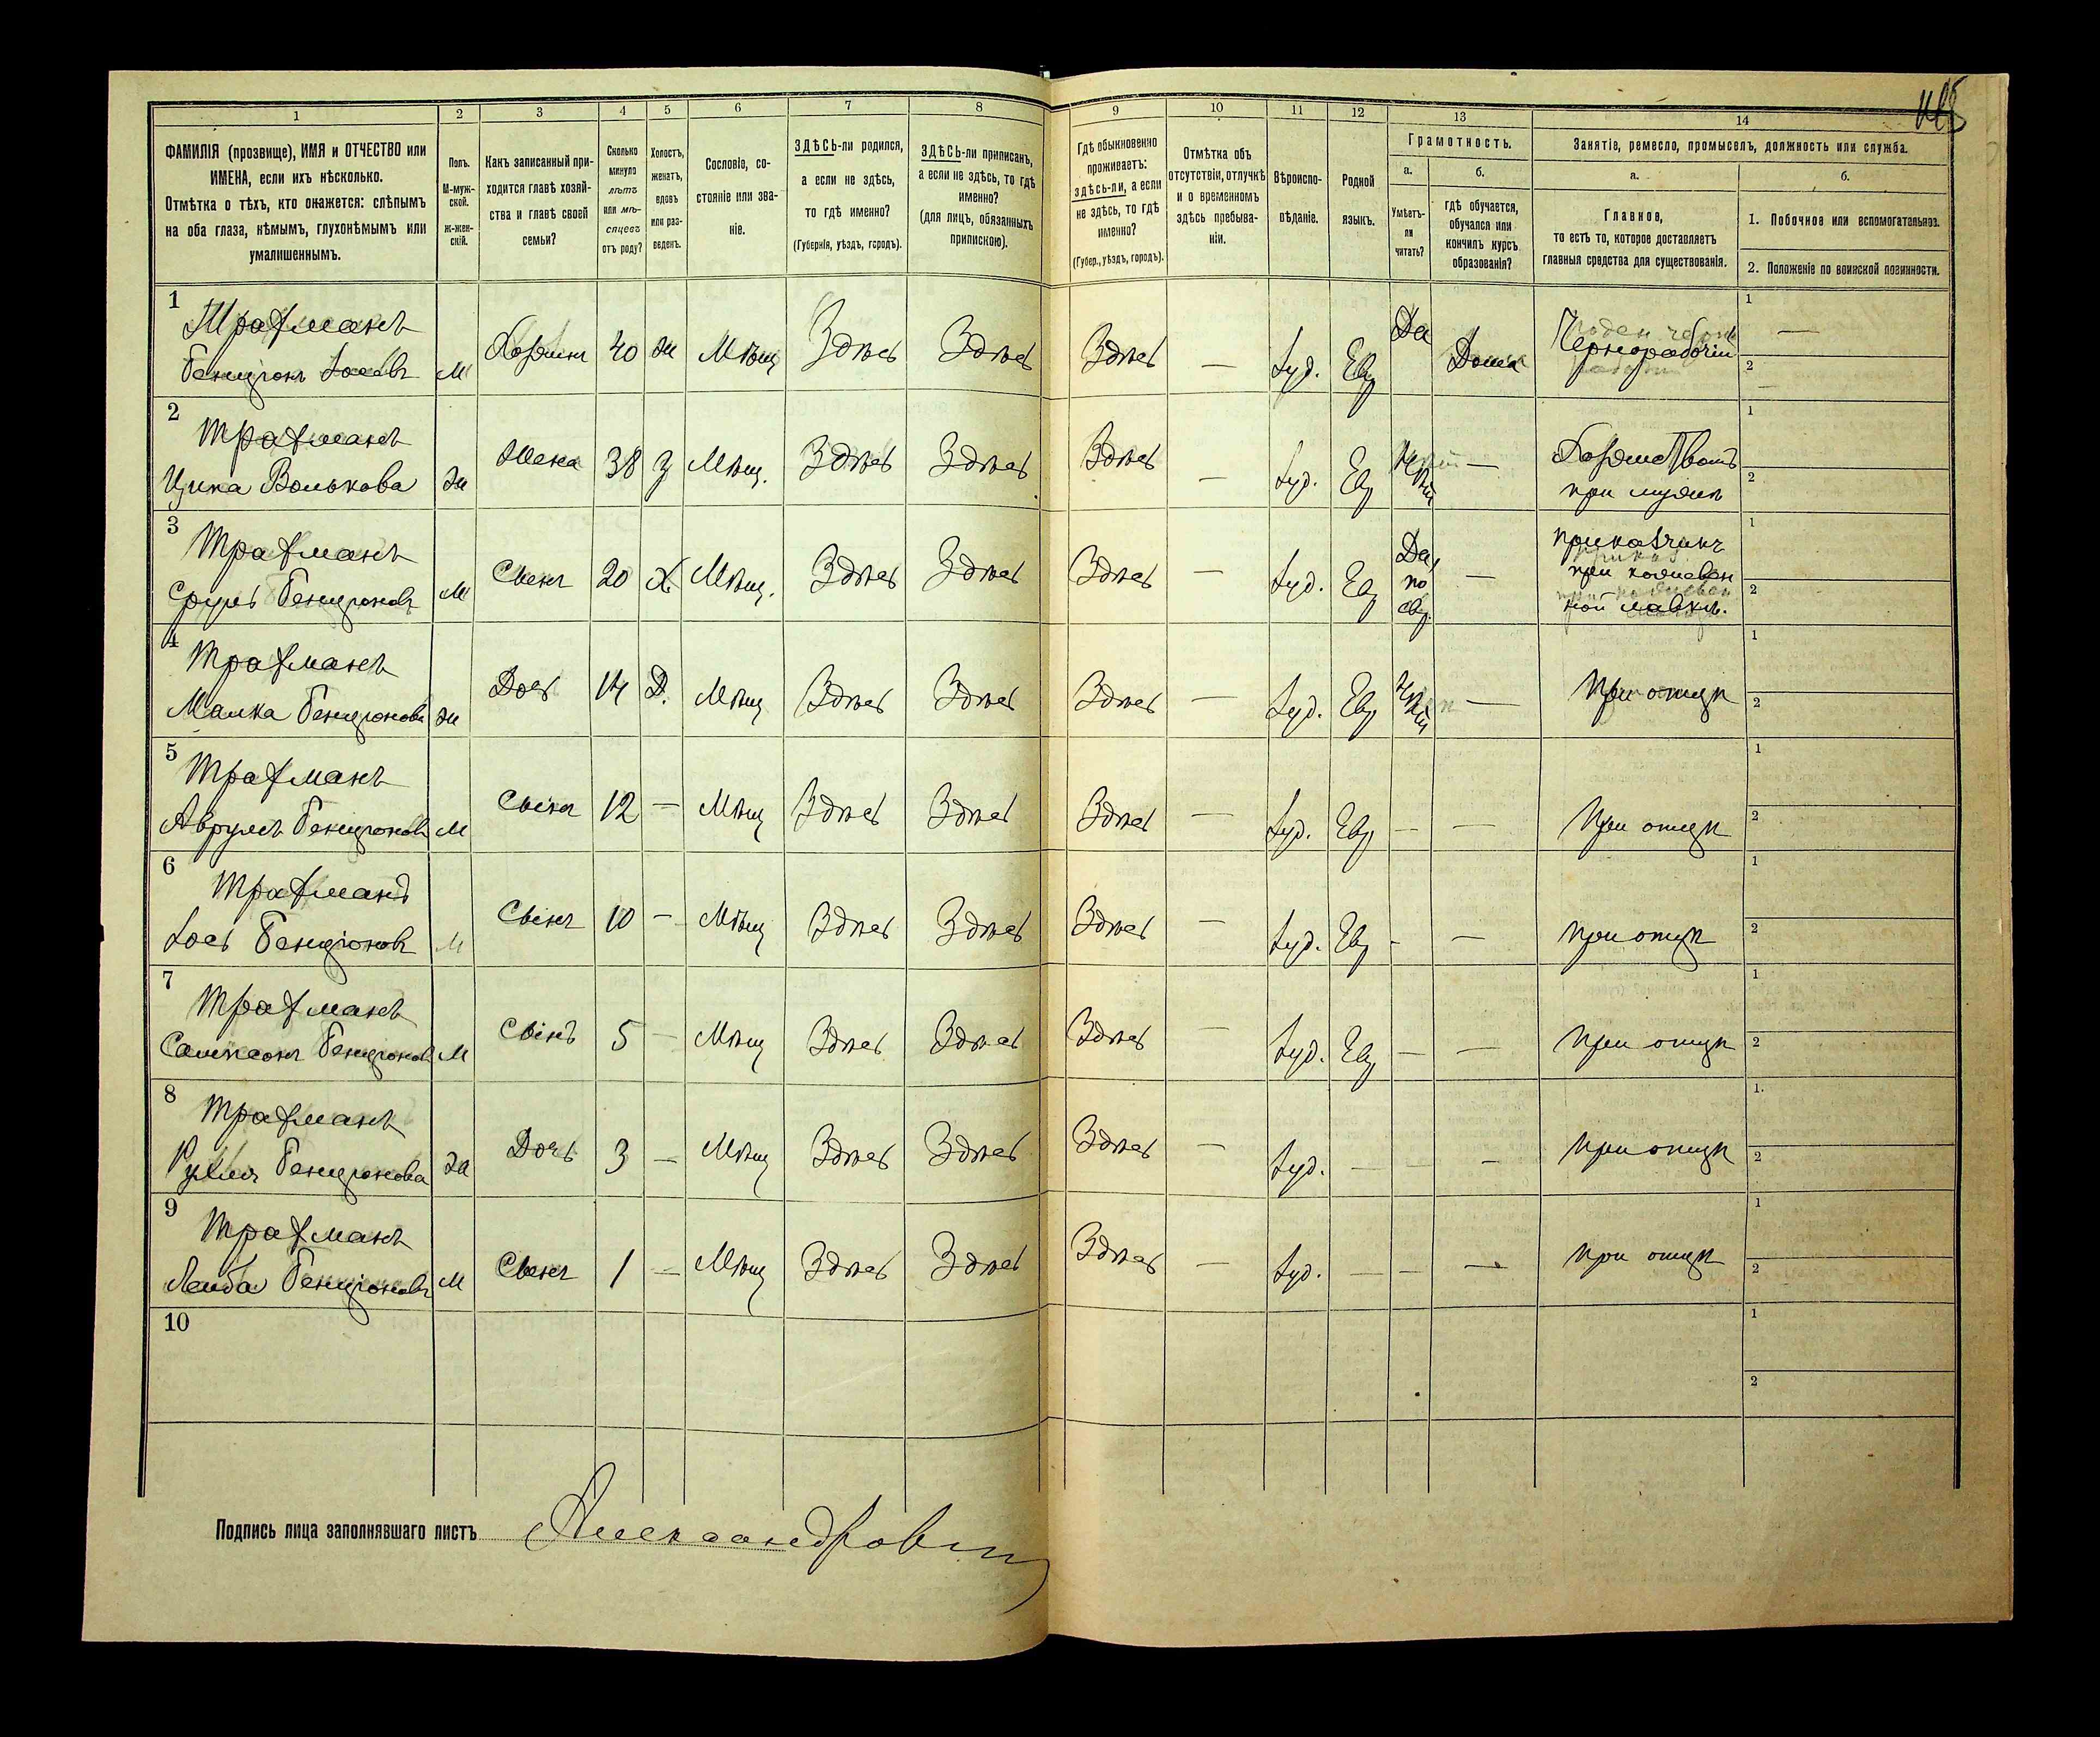 1 2 3 4 5 6 7 8 9 10 11 12 13 14
ФАМИЛІЯ (прозвище), ИМЯ и ОТЧЕСТВО или
ИМЕНА, если ихъ нѣсколько.
Отмѣтка о тѣхъ, кто окажется: слѣпымъ
на оба глаза, нѣмымъ, глухонѣмымъ или
умалишеннымъ.
Полъ.
М-муж-
ской.
Ж-жен-
скій.
Какъ записанный при-
ходится главѣ хозяй-
ства и главѣ своей
семьи?
Сколько
минуло
лѣтъ
или мѣ-
сяцевъ
отъ роду?
Холостъ,
женатъ,
вдовъ
или раз-
веденъ.
Сословіе, со-
стояніе или зва-
ніе.
ЗДѢСЬ-ли родился,
а если не здѣсь,
то гдѣ именно?
(Губернія, уѣздъ, городъ).
ЗДѢСЬ-ли приписанъ,
а если не здѣсь, то гдѣ
именно?
(для лицъ, обязанныхъ
припискою).
Гдѣ обыкновенно
проживаетъ:
здѣсь-ли, а если
не здѣсь, то гдѣ
именно?
(Губер., уѣздъ, городъ).
Отмѣтка объ
отсутствіи, отлучкѣ
и о временномъ
здѣсь пребыва-
ніи.
Вѣроиспо-
вѣданіе.
Родной
языкъ.
Грамотность.
а.
Умѣетъ-
ли
читать?
б.
гдѣ обучается,
обучался или
кончилъ курсъ
образованія?
Занятіе, ремесло, промыселъ, должность или служба.
а.
Главное,
то есть то, которое доставляетъ
главныя средства для существованія.
б.
1. Побочное или вспомогательное.
2. Положеніе по воинской повинности.
1
Трахманъ
Бенціонъ Іосевъ М Хозяинъ 40 ж Мѣщ Здѣсь Здѣсь Здѣсь — Іуд. Евр Да Дома Чернорабочій 1 — 2
2
Трахманъ
Ципа Волькова ж Жена 38 З Мѣщ. Здѣсь Здѣсь Здѣсь — Іуд. Евр — Хозяйствомъ
при мужѣ 1 2
3
Трахманъ
Сруль Бенціоновъ М Сынъ 20 Х Мѣщ. Здѣсь Здѣсь Здѣсь — Іуд. Евр Да,
по
евр. — приказчикъ
при кожевен
ной лавкѣ. 1 2
4
Трахманъ
Малка Бенціонова ж Дочь 14 Д. Мѣщ Здѣсь Здѣсь Здѣсь — Іуд. Евр — При отцѣ 1 2
5
Трахманъ
Аврумъ Бенціоновъ М Сынъ 12 — Мѣщ Здѣсь Здѣсь Здѣсь — Іуд. Евр — — При отцѣ 1 2
6
Трахманъ
Іось Бенціоновъ М Сынъ 10 — Мѣщ Здѣсь Здѣсь Здѣсь — Іуд. Евр - — при отцѣ 1 2
7
Трахманъ
Самсонъ Бенціоновъ М Сынъ 5 — Мѣщ Здѣсь Здѣсь Здѣсь — Іуд. Евр — — при отцѣ 1 2
8
Трахманъ
Рухля Бенціонова ж Дочь 3 — Мѣщ Здѣсь Здѣсь Здѣсь — Іуд. — — — при отцѣ 1. 2
9
Трахманъ
Лейба Бенціоновъ М Сынъ 1 — Мѣщ Здѣсь Здѣсь Здѣсь — Іуд. — — — при отцѣ 1 2
10 1 2
Подпись лица заполнявшаго листъ Александрович